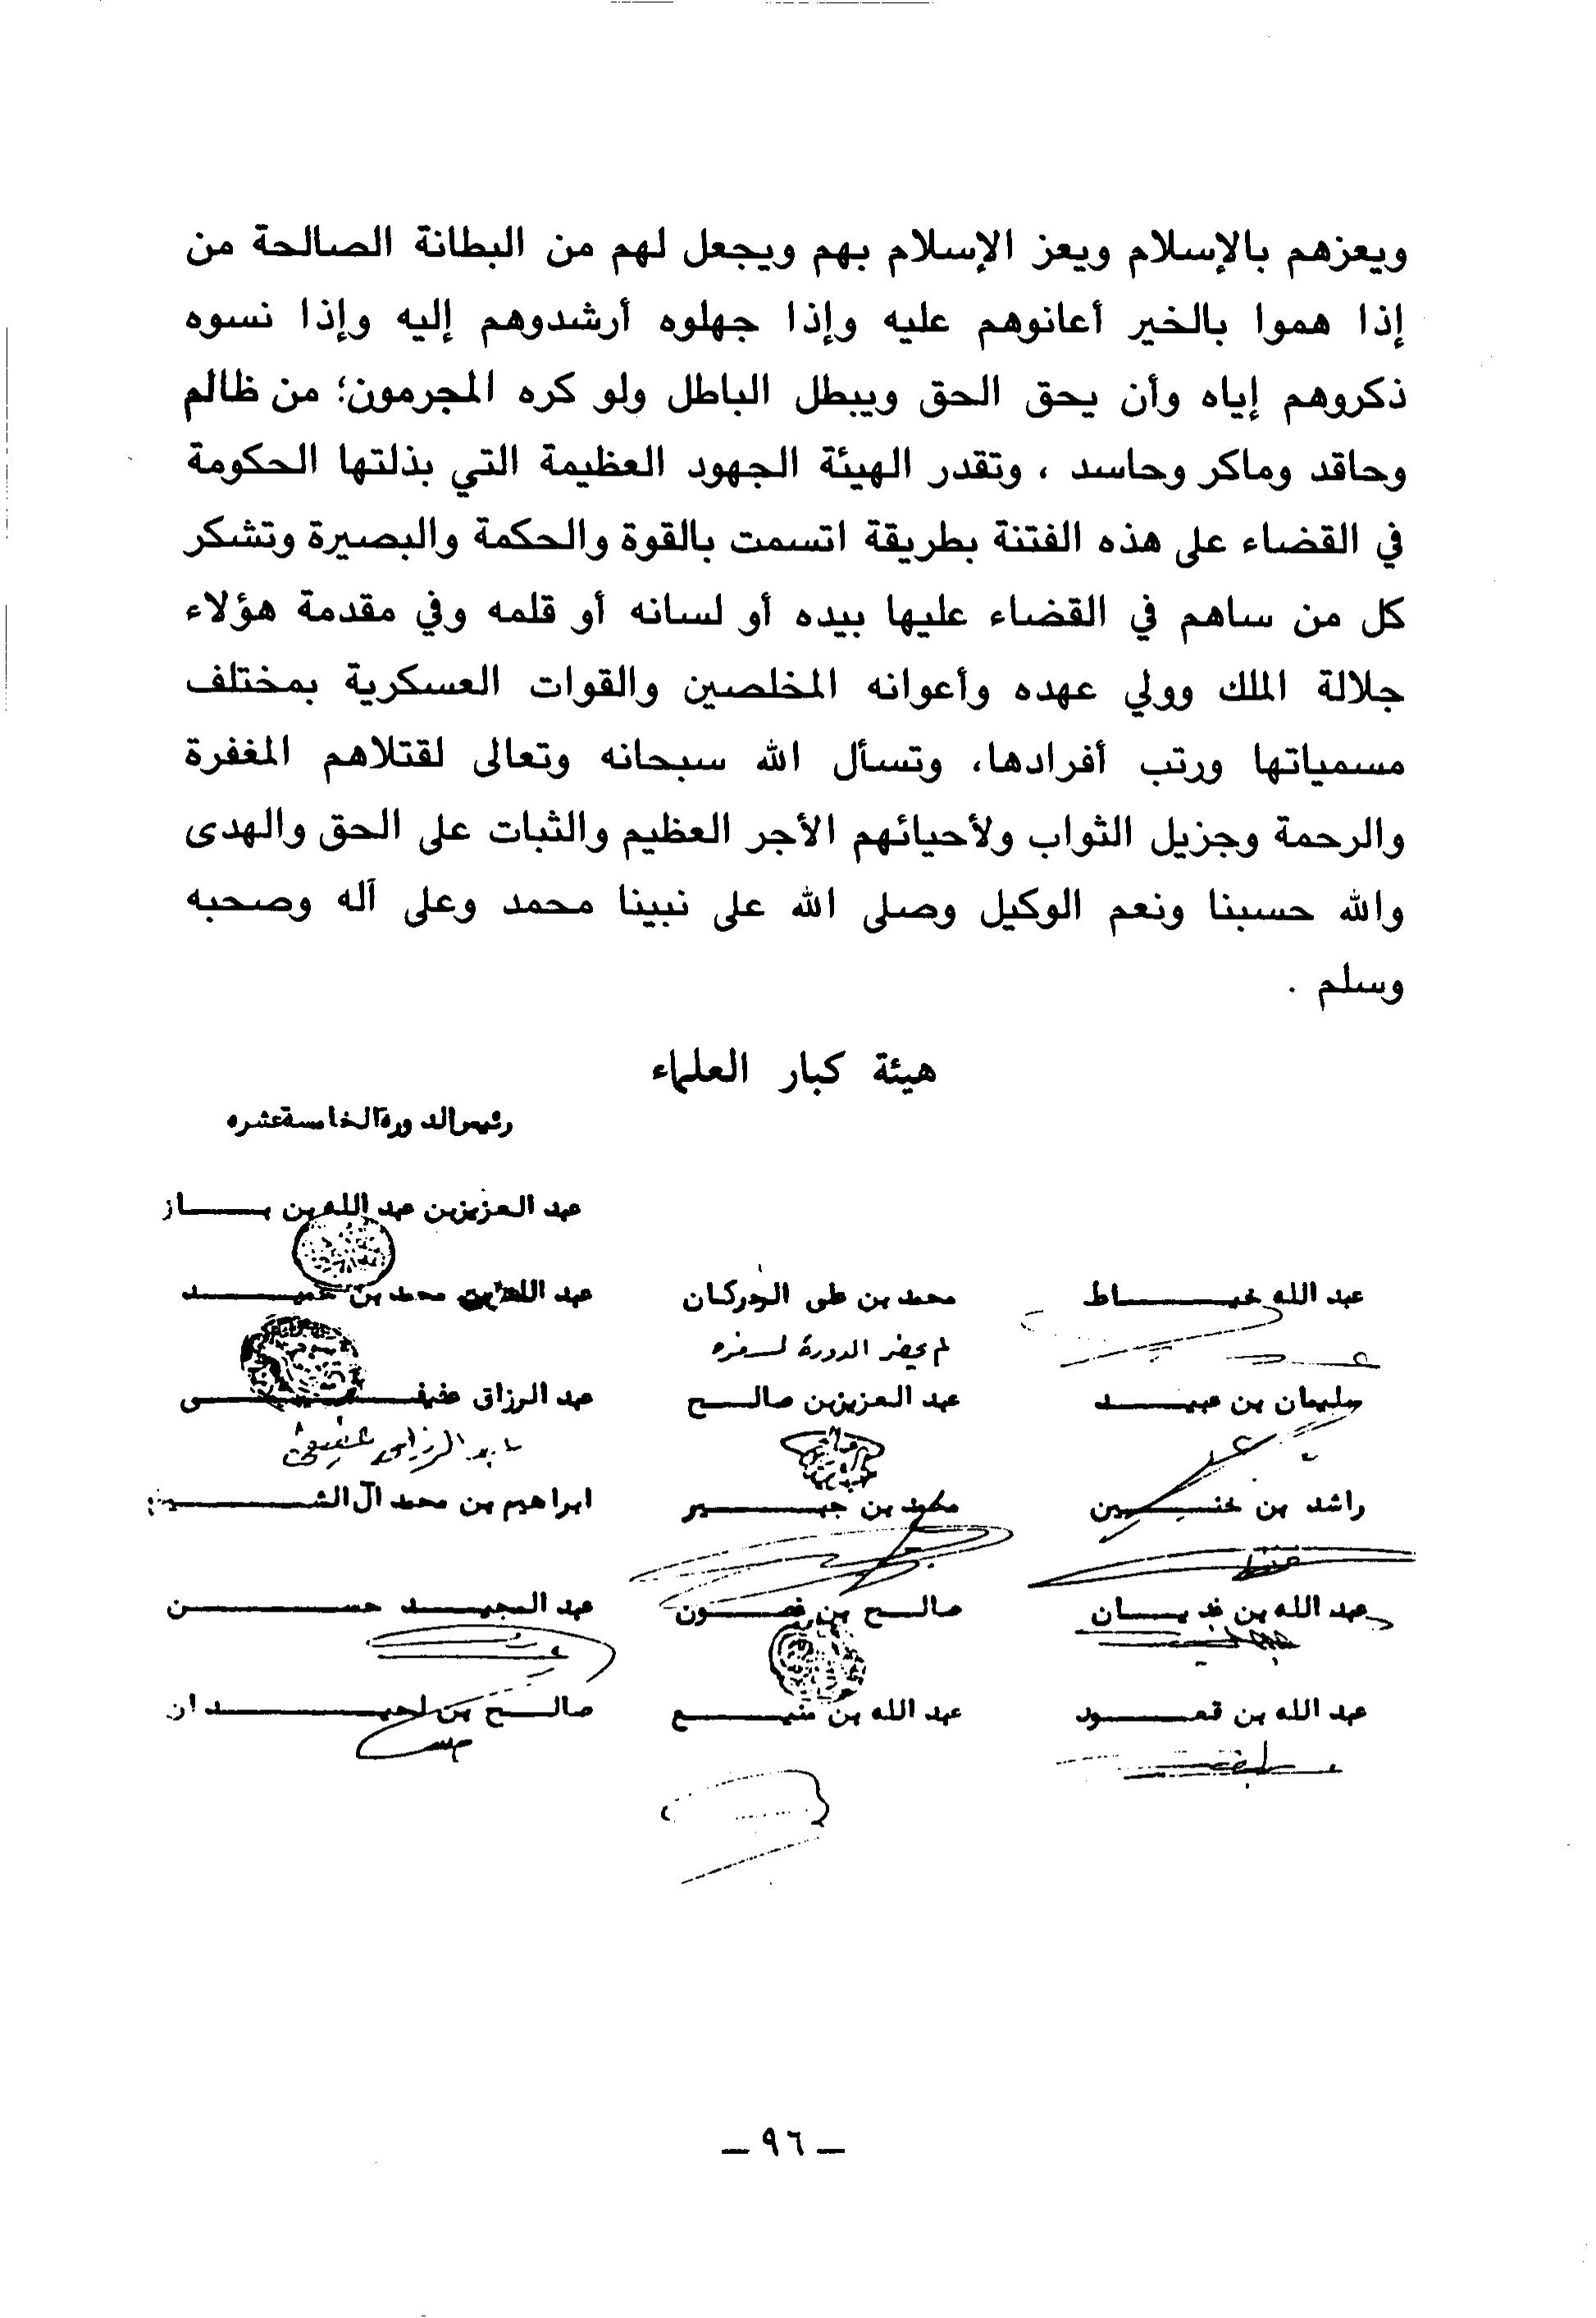 ويعزهم بالإسلام ويعز الإسلام بهم ويجعل لهم من البطانة الصالحة من
إذا هموا بالخير أعانوهم عليه وإذا جهلوه أرشدوهم إليه وإذا نسوه
ذكروهم إياه وأن يحق الحق ويبطل الباطل ولو كره المجرمون؛ من ظالم
وحاقد وماكر وحاسد ، وتقدر الهيئة الجهود العظيمة التي بذلتها الحكومة
في القضاء على هذه الفتنة بطريقة اتسمت بالقوة والحكمة والبصيرة وتشكر
كل من ساهم في القضاء عليها بيده أو لسانه أو قلمه وفي مقدمة هؤلاء
جلالة الملك وولي عهده وأعوانه المخلصين والقوات العسكرية بمختلف
مسمياتها ورتب أفرادها، وتسأل الله سبحانه وتعالى لقتلاهم المغفرة
والرحمة وجزيل الثواب ولأحيائهم الأجر العظيم والثبات على الحق والهدى
والله حسبنا ونعم الوكيل وصلى الله على نبينا محمد وعلى آله وصحبه
وسلم .
هيئة كبار العلماء
رئيس الدورة الخامسة عشره
عبد العزيز بن عبد الله بن باز
عبد الله خياط محمد بن علي الحركان عبد الله بن محمد بن حميد
لم يحضر الدورة لسفره
سليمان بن عبيد عبد العزيز بن صالح عبد الرزاق عفيفي
عبد الرزاق عفيفي
راشد بن خنين محمد بن جبير ابراهيم بن محمد آل الشيخ
عبد الله بن غديان صالح بن غصون عبد المجيد حسن
عبد الله بن قعود عبد الله بن منيع صالح بن لحيدان
— ٩٦ —